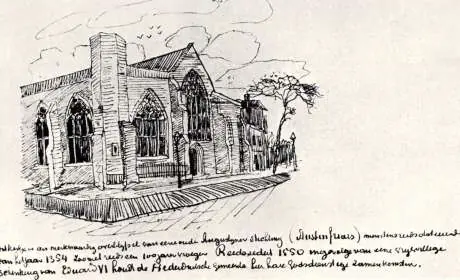 kerkje is een merkwaardig overblijfsel van eene oude Augustyner stichting (Austin friars) minstens reeds dateerende
van het jaar 1354 zoo niet reeds een 100 jaar vroeger Reeds sedert 1550 ingevolge van eene vrijwillige
schenking van Eduard VI houdt de Nederduitsche gemeente hier hare Godsdienstige zamenkomsten.